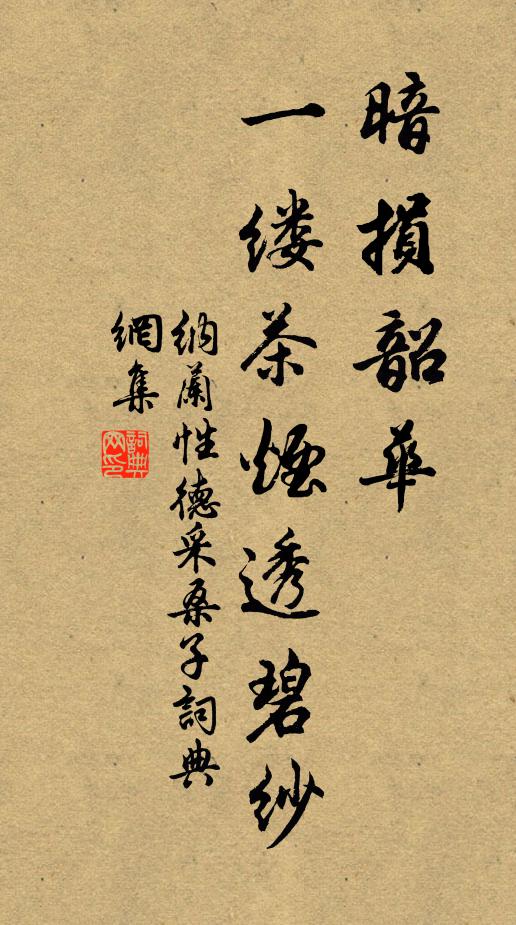 暗損韶華
一缕茶煙透碧紗
納蘭性德采桑子詞典
網集
詞典
网印